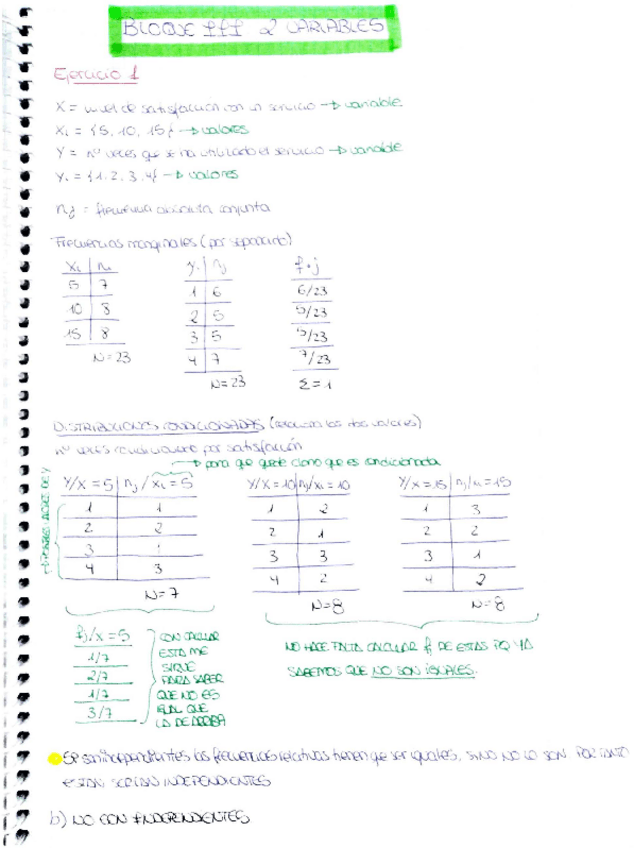 BLOQUE III 2 VARIABLES
Ejercicio 1
X = nivel de satisfacción con un servicio → variable
Xi = {5, 10, 15} → valores
Y = nº veces que se ha utilizado el servicio → variable
Yi = {1, 2, 3, 4} → valores
nij = frecuencia absoluta conjunta
Frecuencias marginales (por separado)
Xi ni
5 7
10 8
15 8
N=23
Yi nj
1 6
2 5
3 5
4 7
N=23
f·j
6/23
5/23
5/23
7/23
Σ=1
DISTRIBUCIONES CONDICIONADAS (relaciona los dos valores)
nº veces condicionado por satisfacción
→ para que quede claro que es condicionada
→ POSIBLES VALORES DE Y
Y/X=5 nj/xi=5
1 1
2 2
3 1
4 3
N=7
Y/X=10 nj/xi=10
1 2
2 1
3 3
4 2
N=8
Y/X=15 nj/xi=15
1 3
2 2
3 1
4 2
N=8
fj/x=5
1/7
2/7
1/7
3/7
CON CALCULAR
ESTA ME
SIRVE
PARA SABER
QUE NO ES
IGUAL QUE
LA DE ARRIBA
NO HACE FALTA CALCULAR fj DE ESTAS PQ YA
SABEMOS QUE NO SON IGUALES.
Si son independientes las frecuencias relativas tienen que ser iguales, SINO NO LO SON POR TANTO
ESTAN SERIAN INDEPENDIENTES
b) NO SON INDEPENDIENTES